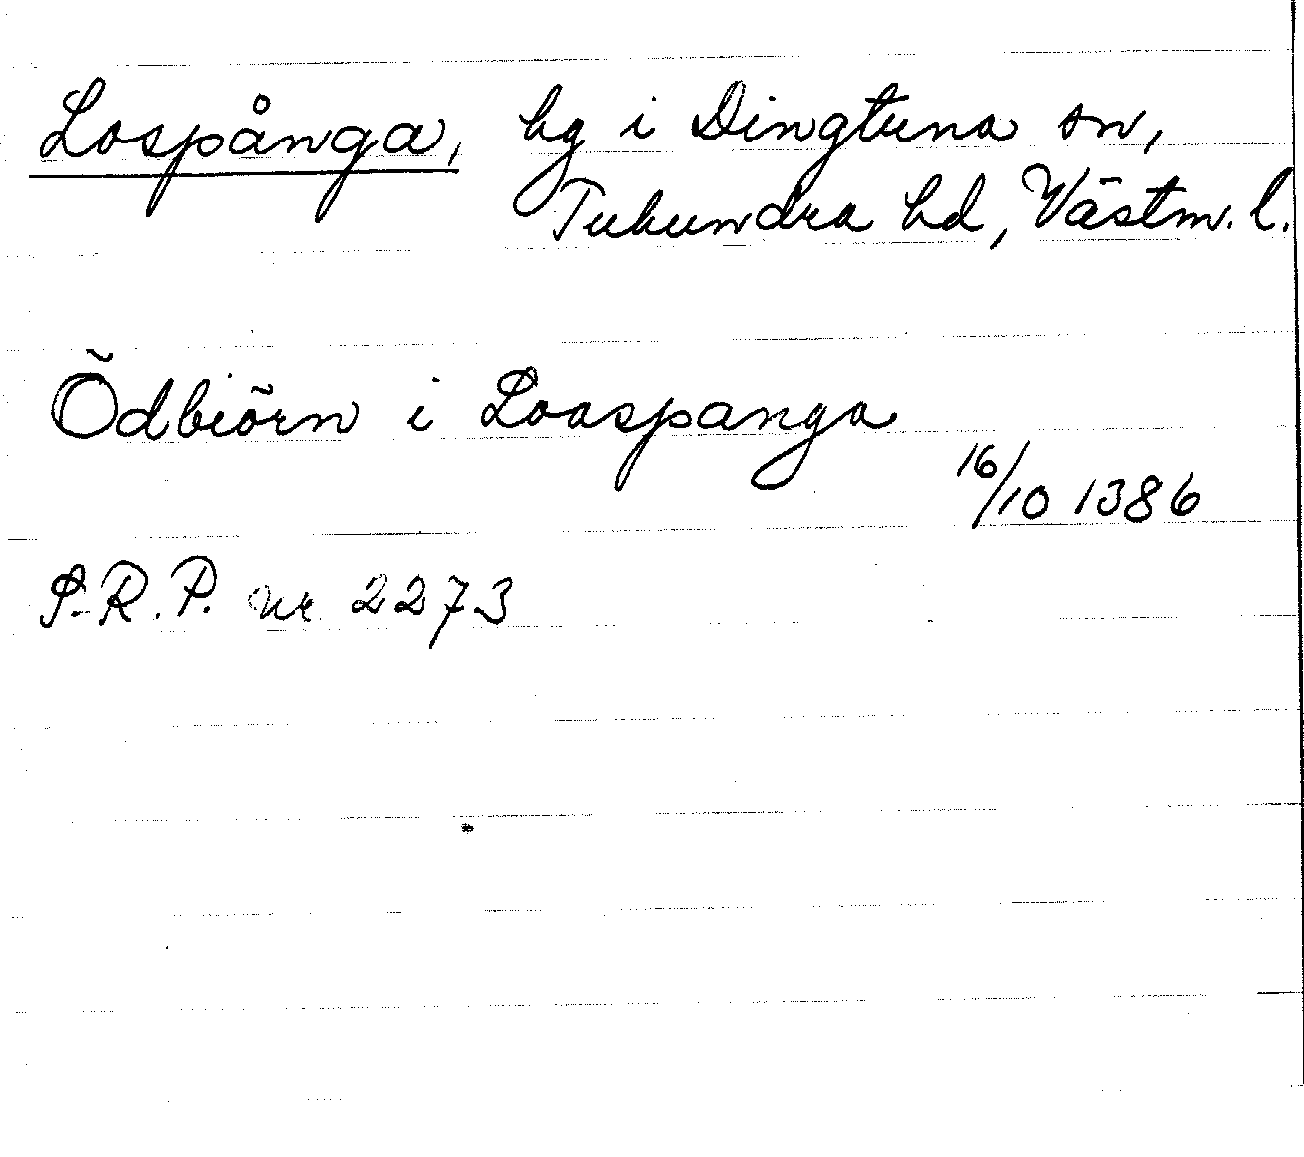 Lospånga, hg i Dingtuna sn,
Tuhundra hd, Västm. l.
Ödbiörn i Loaspanga
16/10 1386
S.R.P. nr 2273